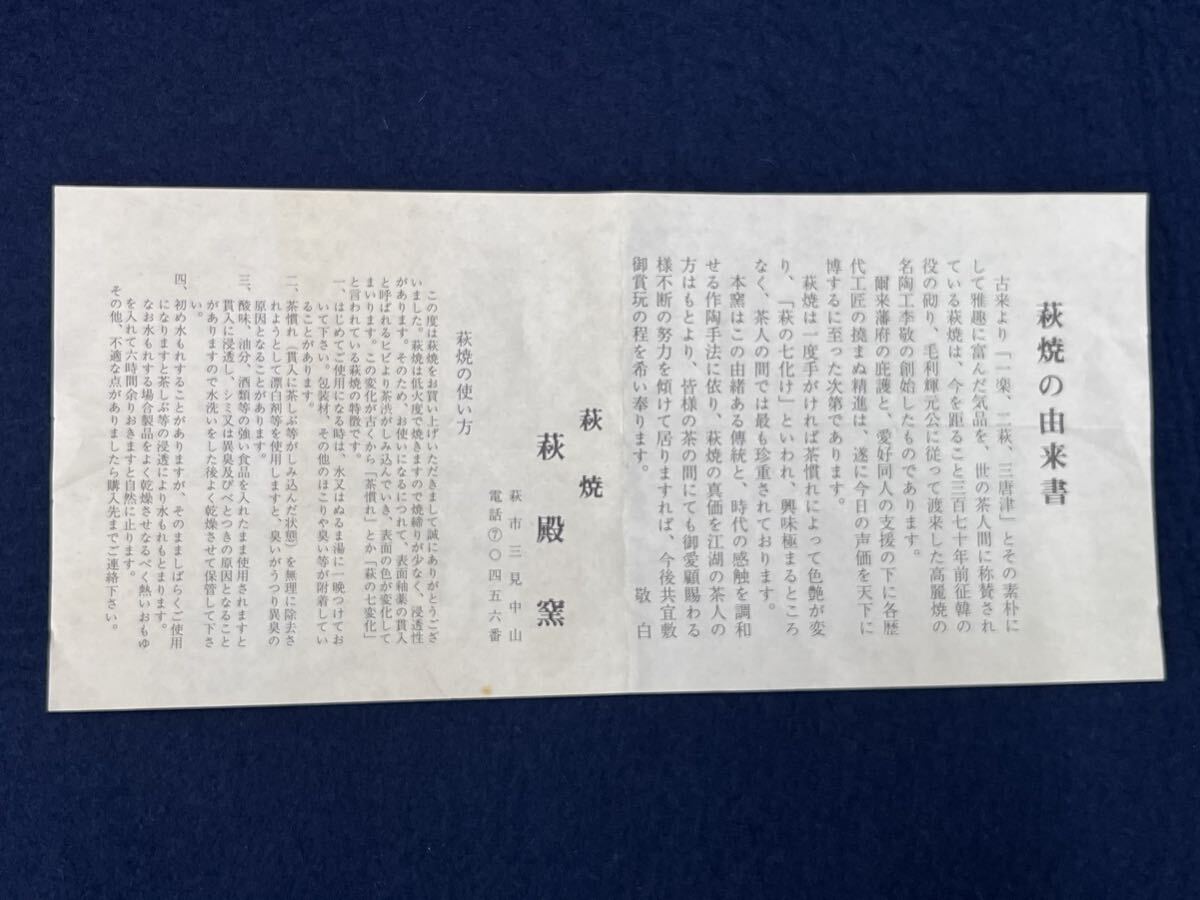 萩焼の由来書
古来より「一楽、二萩、三唐津」とその素朴に
して雅趣に富んだ気品を、世の茶人間に称賛され
ている萩焼は、今を距ること三百七十年前征韓の
役の砌り、毛利輝元公に従って渡来した高麗焼の
名陶工李敬の創始したものであります。
爾来藩府の庇護と、愛好同人の支援の下に各歴
代工匠の撓まぬ精進は、遂に今日の声価を天下に
博するに至った次第であります。
萩焼は一度手がければ茶慣れによって色艶が変
り、「萩の七化け」といわれ、興味極まるところ
なく、茶人の間では最も珍重されております。
本窯はこの由緒ある傳統と、時代の感触を調和
せる作陶手法に依り、萩焼の真価を江湖の茶人の
方はもとより、皆様の茶の間にても御愛顧賜わる
様不断の努力を傾けて居りますれば、今後共宜敷
御賞玩の程を希い奉ります。
敬白
萩焼
萩殿窯
萩市三見中山
電話⑦〇四五六番
萩焼の使い方
この度は萩焼をお買い上げいただきまして誠にありがとうござ
いました。萩焼は低火度で焼きますので焼締りが少なく、浸透性
があります。そのため、お使いになるにつれて、表面釉薬の貫入
と呼ばれるヒビより茶渋がしみ込んでいき、表面の色が変化して
まいります。この変化が古くから「茶慣れ」とか「萩の七変化」
と言われている萩焼の特徴です。
一、はじめてご使用になる時は、水又はぬるま湯に一晩つけてお
いて下さい。包装材、その他のほこりや臭い等が附着してい
ることがあります。
二、茶慣れ(貫入に茶しぶ等がしみ込んだ状態)を無理に除去さ
れようとして漂白剤等を使用しますと、臭いがうつり異臭の
原因となることがあります。
三、酸味、油分、酒類等の強い食品を入れたまま使用されますと
貫入に浸透し、シミ又は異臭及びべとつきの原因となること
がありますので水洗いをした後よく乾燥させて保管して下さ
い。
四、初め水もれすることがありますが、そのまましばらくご使用
になりますと茶しぶ等の浸透により水もれもとまります。
なお水もれする場合製品をよく乾燥させなるべく熱いおもゆ
を入れて六時間余りおきますと自然に止ります。
その他、不適な点がありましたら購入先までご連絡下さい。